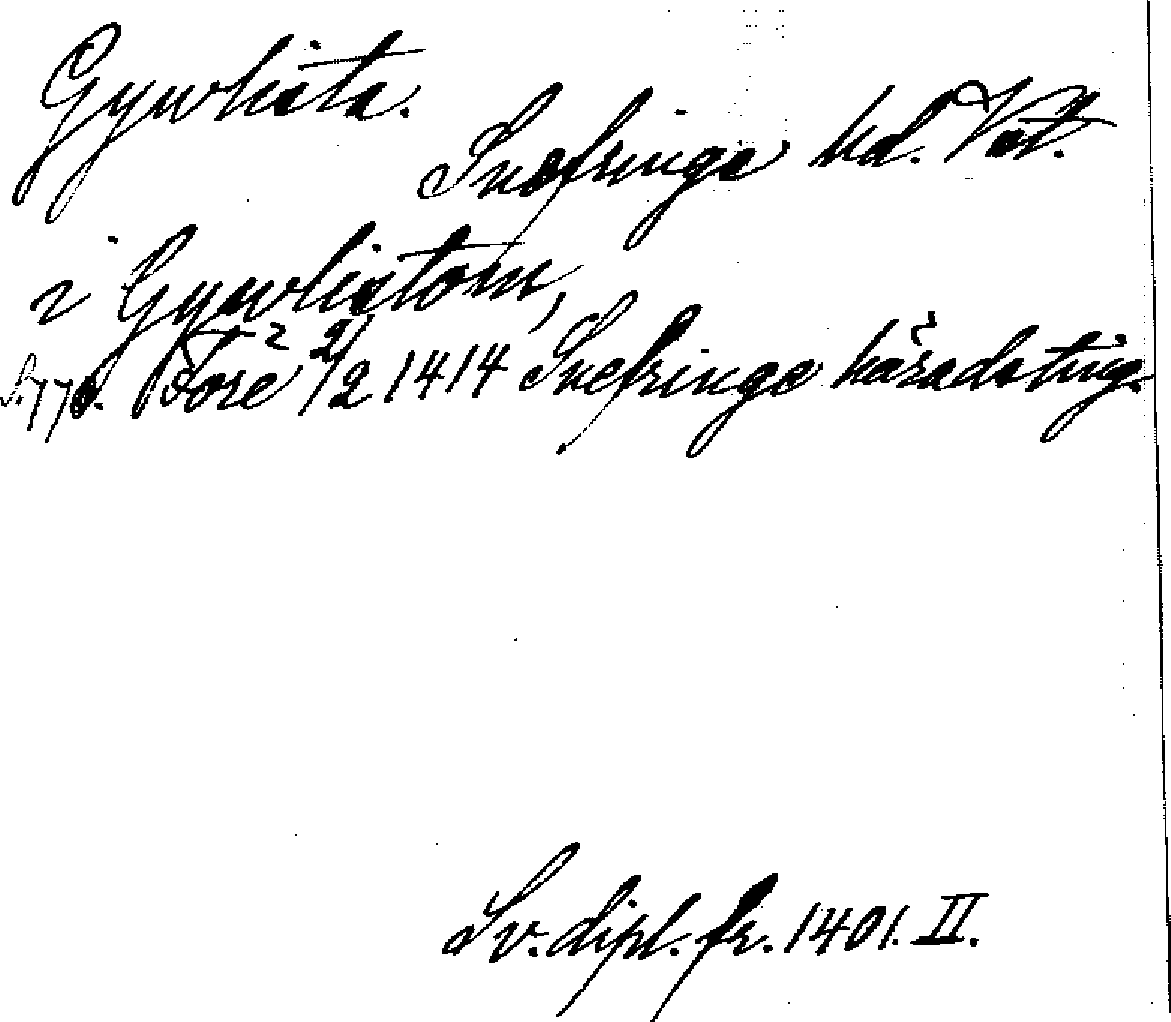 Gywlista.
Snefringe hd. Vst.
i Gywlistom,
S. 770. Före 2/2 1414 Snefringe häradsting.
Sv. dipl. fr. 1401. II.